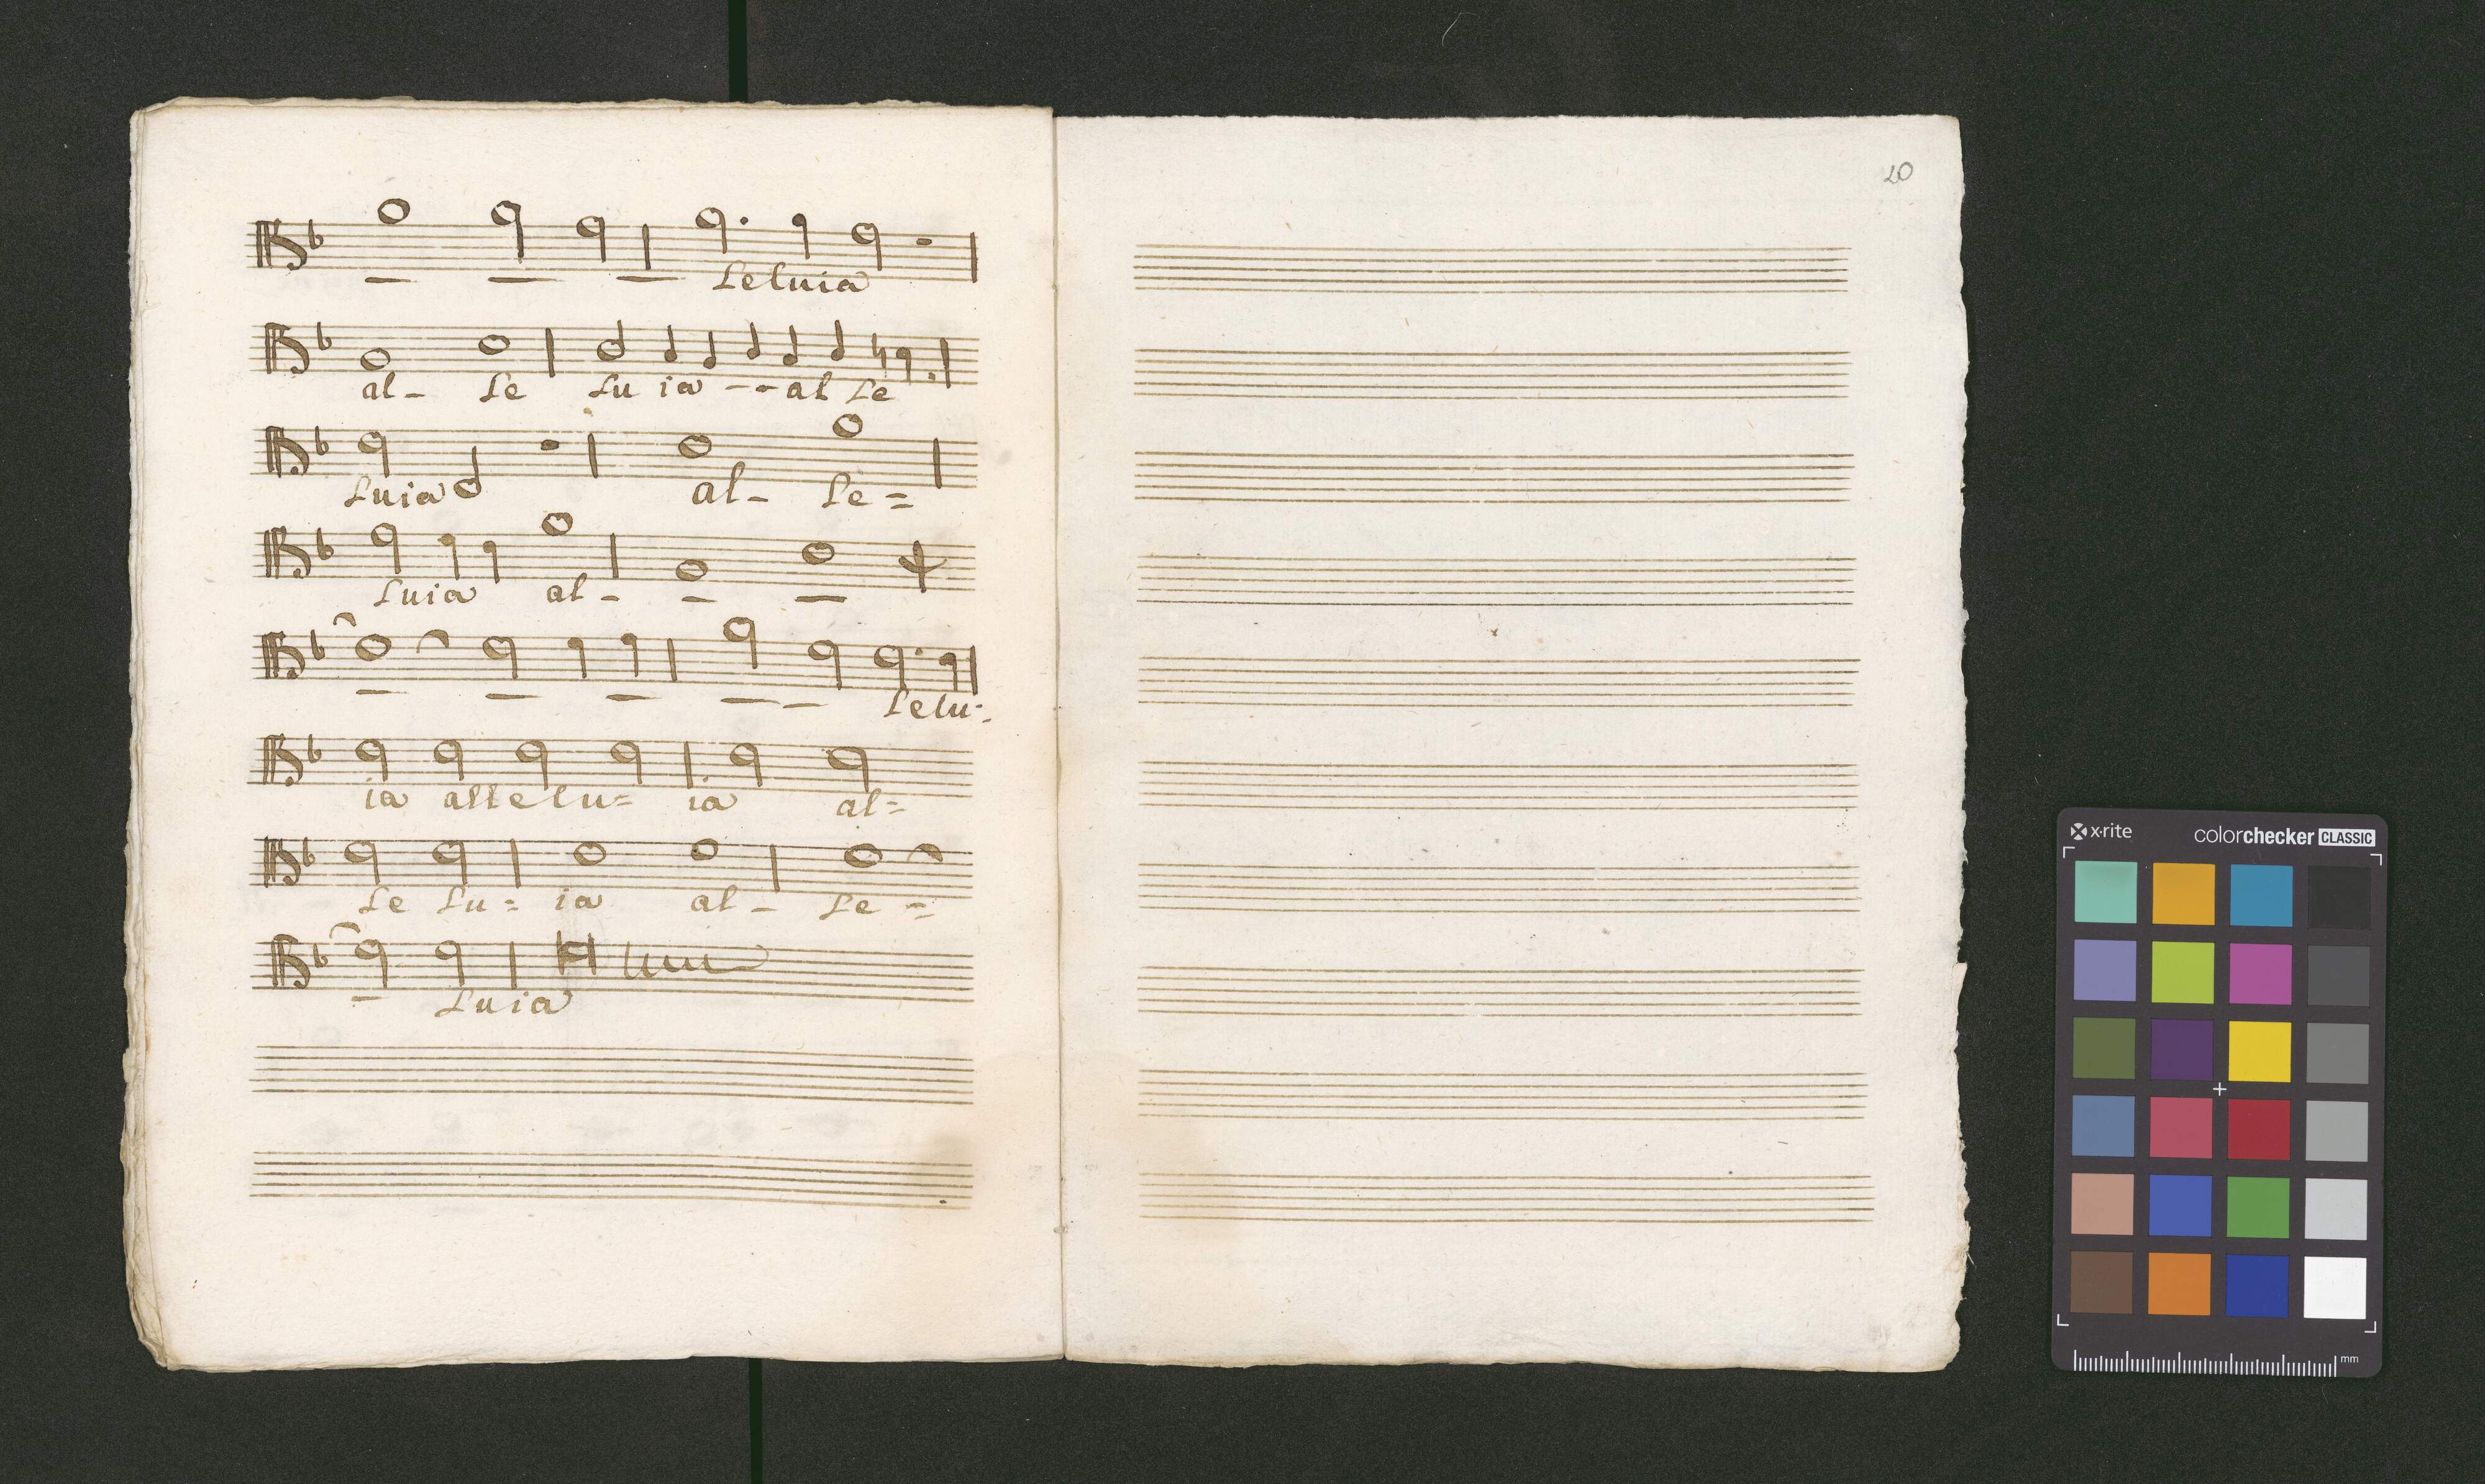 Leluia
al- Le Lu ia -- al Le
Luia al- Le =
Luia al -
Lelu-
ia allelu= ia al=
Le Lu= ia al- Le =
Luia
20
x·rite colorchecker CLASSIC
mm